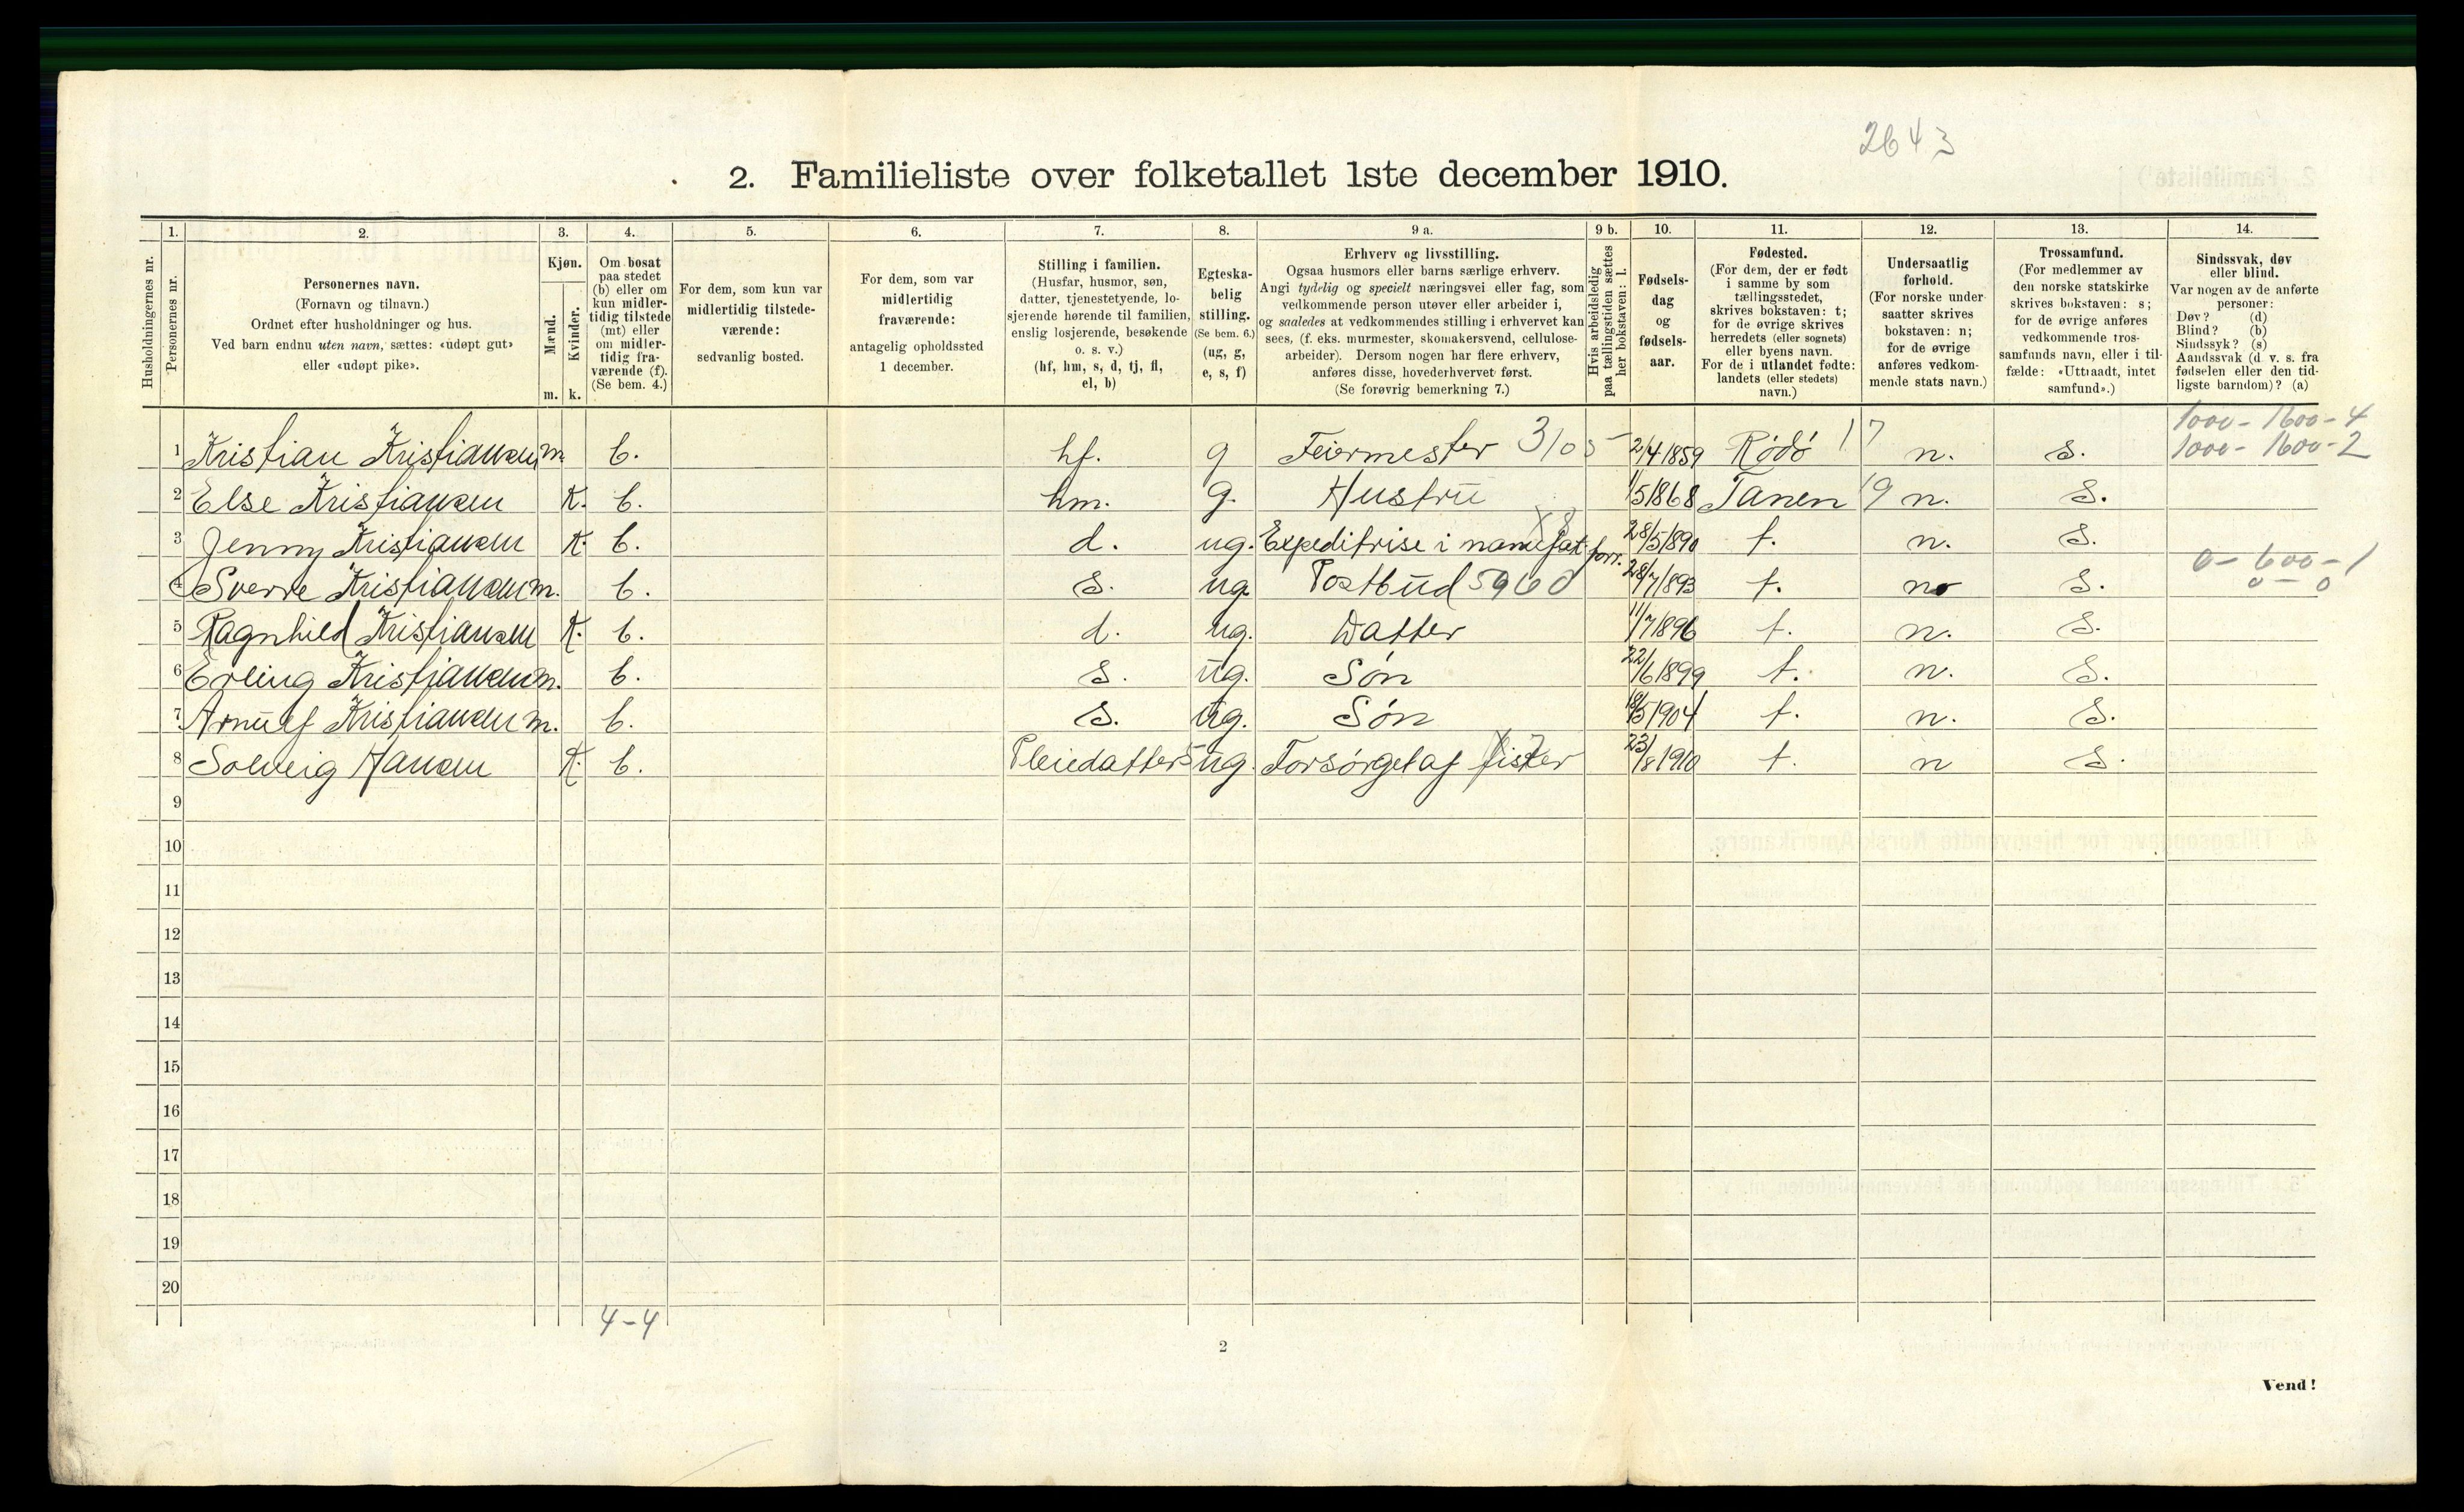 2643
2. Familieliste over folketallet 1ste december 1910.
1. 2. 3. 4. 5. 6. 7. 8. 9 a. 9 b. 10. 11. 12. 13. 14.
Husholdningernes nr.
Personernes nr.
Personernes navn.
(Fornavn og tilnavn.)
Ordnet efter husholdninger og hus.
Ved barn endnu uten navn, sættes: «udøpt gut»
eller «udøpt pike».
Kjøn.
Mænd.
Kvinder.
m. k.
Om bosat
paa stedet
(b) eller om
kun midler-
tidig tilstede
(mt) eller
om midler-
tidig fra-
værende (f).
(Se bem. 4.)
For dem, som kun var
midlertidig tilstede-
værende:
sedvanlig bosted.
For dem, som var
midlertidig
fraværende:
antagelig opholdssted
1 december.
Stilling i familien.
(Husfar, husmor, søn,
datter, tjenestetyende, lo-
sjerende hørende til familien,
enslig losjerende, besøkende
o. s. v.)
(hf, hm, s, d, tj, fl,
el, b)
Egteska-
belig
stilling.
(Se bem. 6.)
(ug, g,
e, s, f)
Erhverv og livsstilling.
Ogsaa husmors eller barns særlige erhverv.
Angi tydelig og specielt næringsvei eller fag, som
vedkommende person utøver eller arbeider i,
og saaledes at vedkommendes stilling i erhvervet kan
sees, (f. eks. murmester, skomakersvend, cellulose-
arbeider). Dersom nogen har flere erhverv,
anføres disse, hovederhvervet først.
(Se forøvrig bemerkning 7.)
Hvis arbeidsledig
paa tællingstiden sættes
her bokstaven: l.
Fødsels-
dag
og
fødsels-
aar.
Fødested.
(For dem, der er født
i samme by som
tællingsstedet,
skrives bokstaven: t;
for de øvrige skrives
herredets (eller sognets)
eller byens navn.
For de i utlandet fødte:
landets (eller stedets)
navn.)
Undersaatlig
forhold.
(For norske under-
saatter skrives
bokstaven: n;
for de øvrige
anføres vedkom-
mende stats navn.)
Trossamfund.
(For medlemmer av
den norske statskirke
skrives bokstaven: s;
for de øvrige anføres
vedkommende tros-
samfunds navn, eller i til-
fælde: «Uttraadt, intet
samfund».)
Sindssvak, døv
eller blind.
Var nogen av de anførte
personer:
Døv? (d)
Blind? (b)
Sindssyk? (s)
Aandssvak (d. v. s. fra
fødselen eller den tid-
ligste barndom)? (a)
1000 - 1600 - 4
1 Kristian Kristiansen m. b. hf. g Feiermester 3105 2/4 1859 Rødø 17 n. s. 1000 - 1600 - 2
2 Else Kristiansen K. b. hm. g. Hustru 1/5 1868 Tanen 19 n. S.
3 Jenny Kristiansen K. b. d. ug. Expeditrise i manufat. forr. 28/5 1890 t. n. S.
0 - 600 - 1
4 Sverre Kristiansen m. b. S. ug. Postbud 5960 28/7 1893 t. n S. 0 - 0
5 Ragnhild Kristiansen K. b. d. ug. Datter 11/7 1896 t. n. S.
6 Erling Kristiansen m. b. S. ug. Søn 22/6 1899 t. n. S.
7 Arnulf Kristiansen m. b. S. ug. Søn 18/5 1904 t. n. S.
8 Solveig Hansen K. b. Pleiedatter ug. Forsørget af 23/8 1910 t. n S.
9
10
11
12
13
14
15
16
17
18
19
20
4-4
2
Vend!